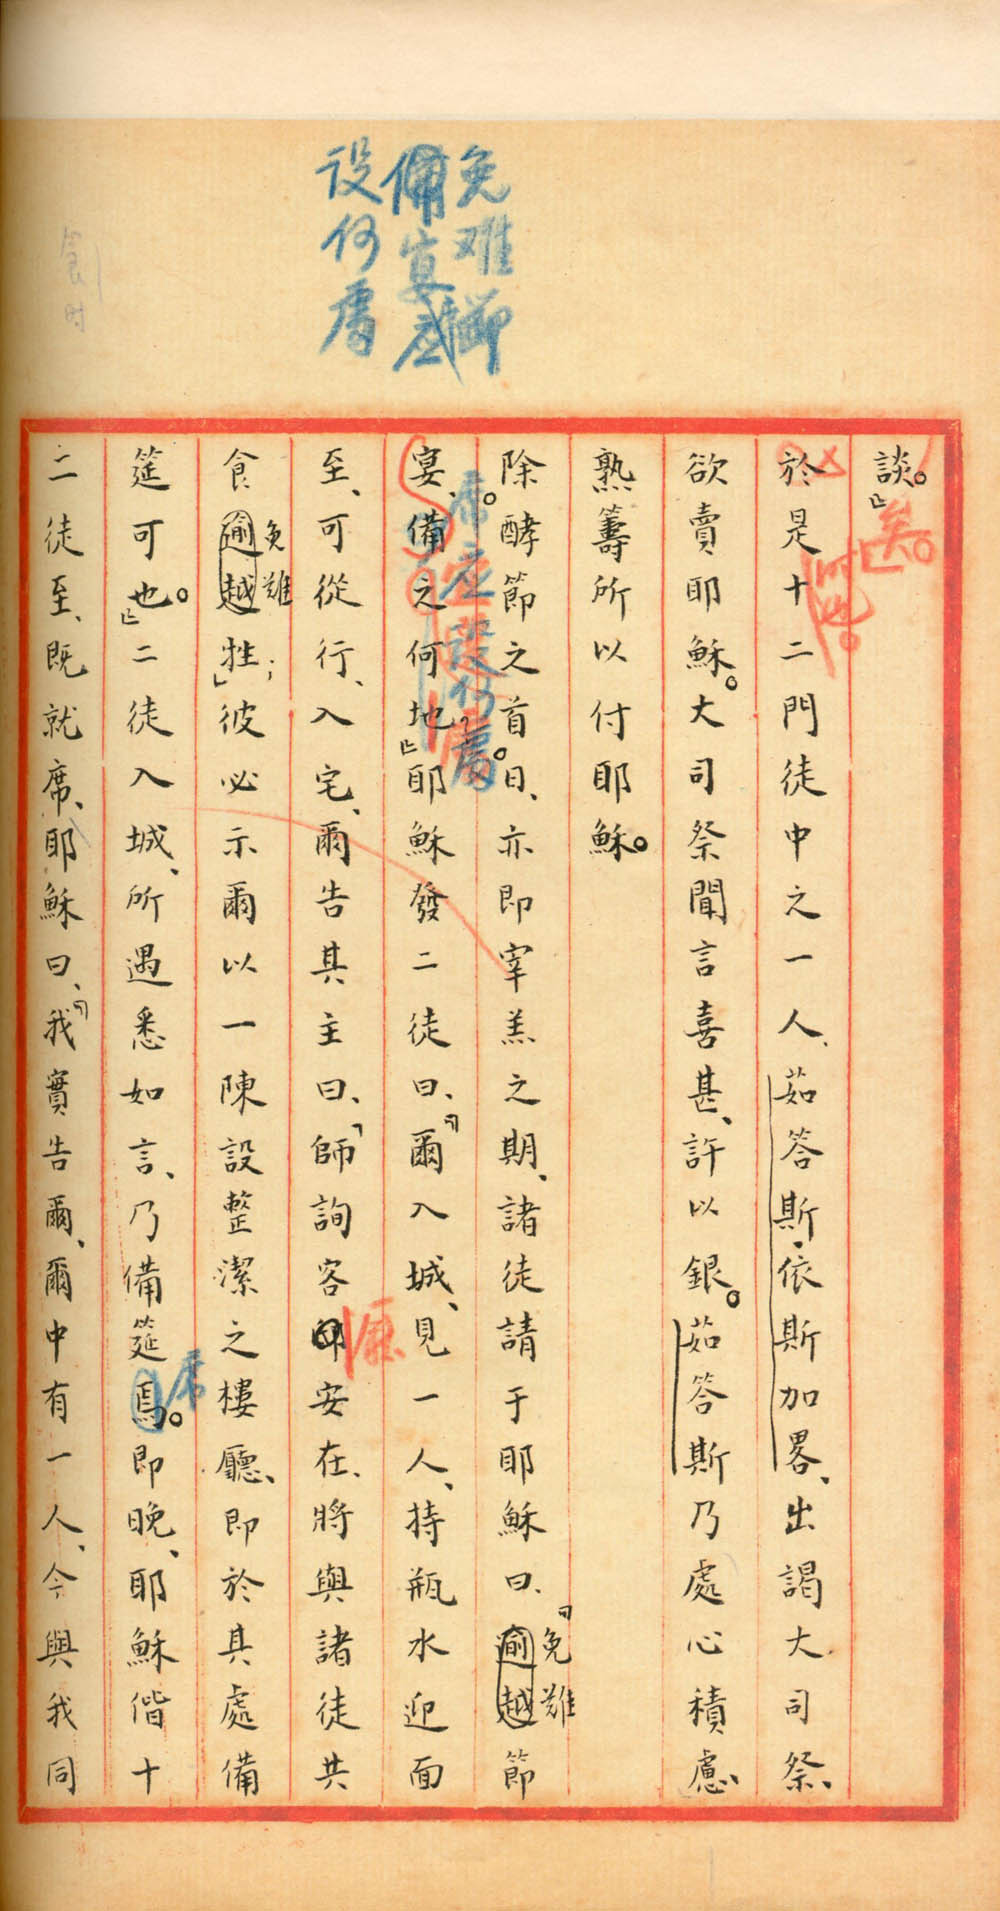 免难節
備宴席
設何處
談。」
矣。」
於是十二門徒中之一人、茹答斯·依斯加畧、出謁大司祭、
欲賣耶穌。大司祭聞言喜甚、許以銀。茹答斯乃處心積慮、
熟籌所以付耶穌。
除酵節之首日、亦即宰羔之期、諸徒請于耶穌曰、「逾越節
免難
宴、備之何地」耶穌發二徒曰、「爾入城、見一人、持瓶水迎面
席座設何處。
至、可從行、入宅、爾告其主曰、「師詢客卽安在、將與諸徒共
食逾越牲;」彼必示爾以一陳設整潔之樓廳、即於具處備
免難
筵可也。」二徒入城、所遇悉如言、乃備筵焉。即晚、耶穌偕十
席
二徒至、既就席、耶穌曰、「我實告爾、爾中有一人、今與我同